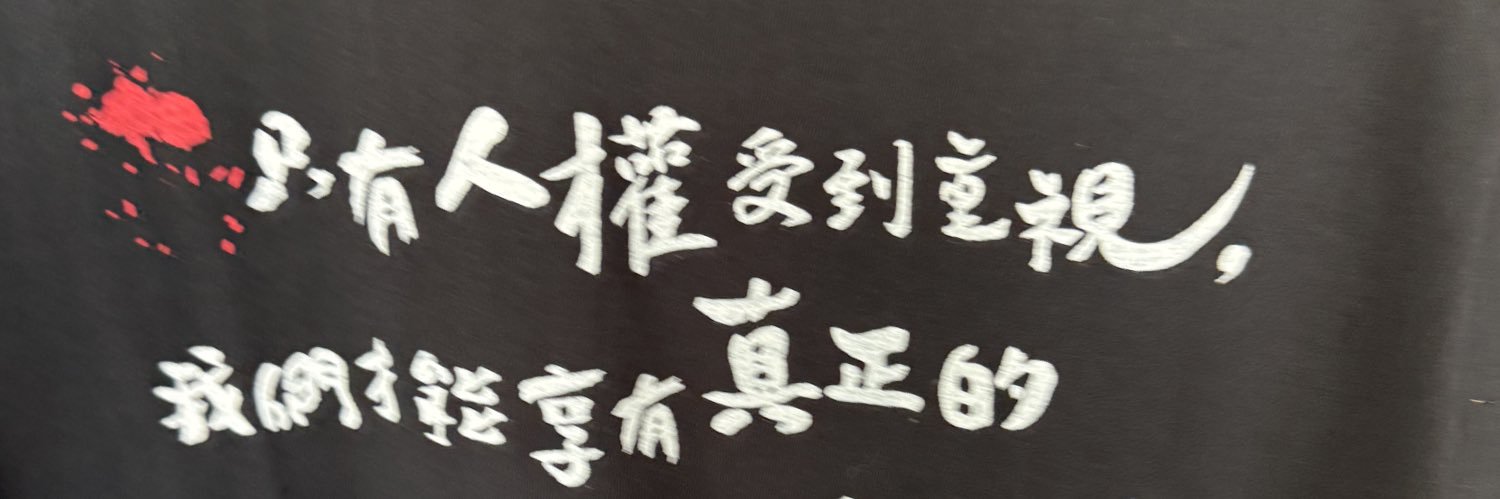 只有人權受到重視，
我們才能享有真正的